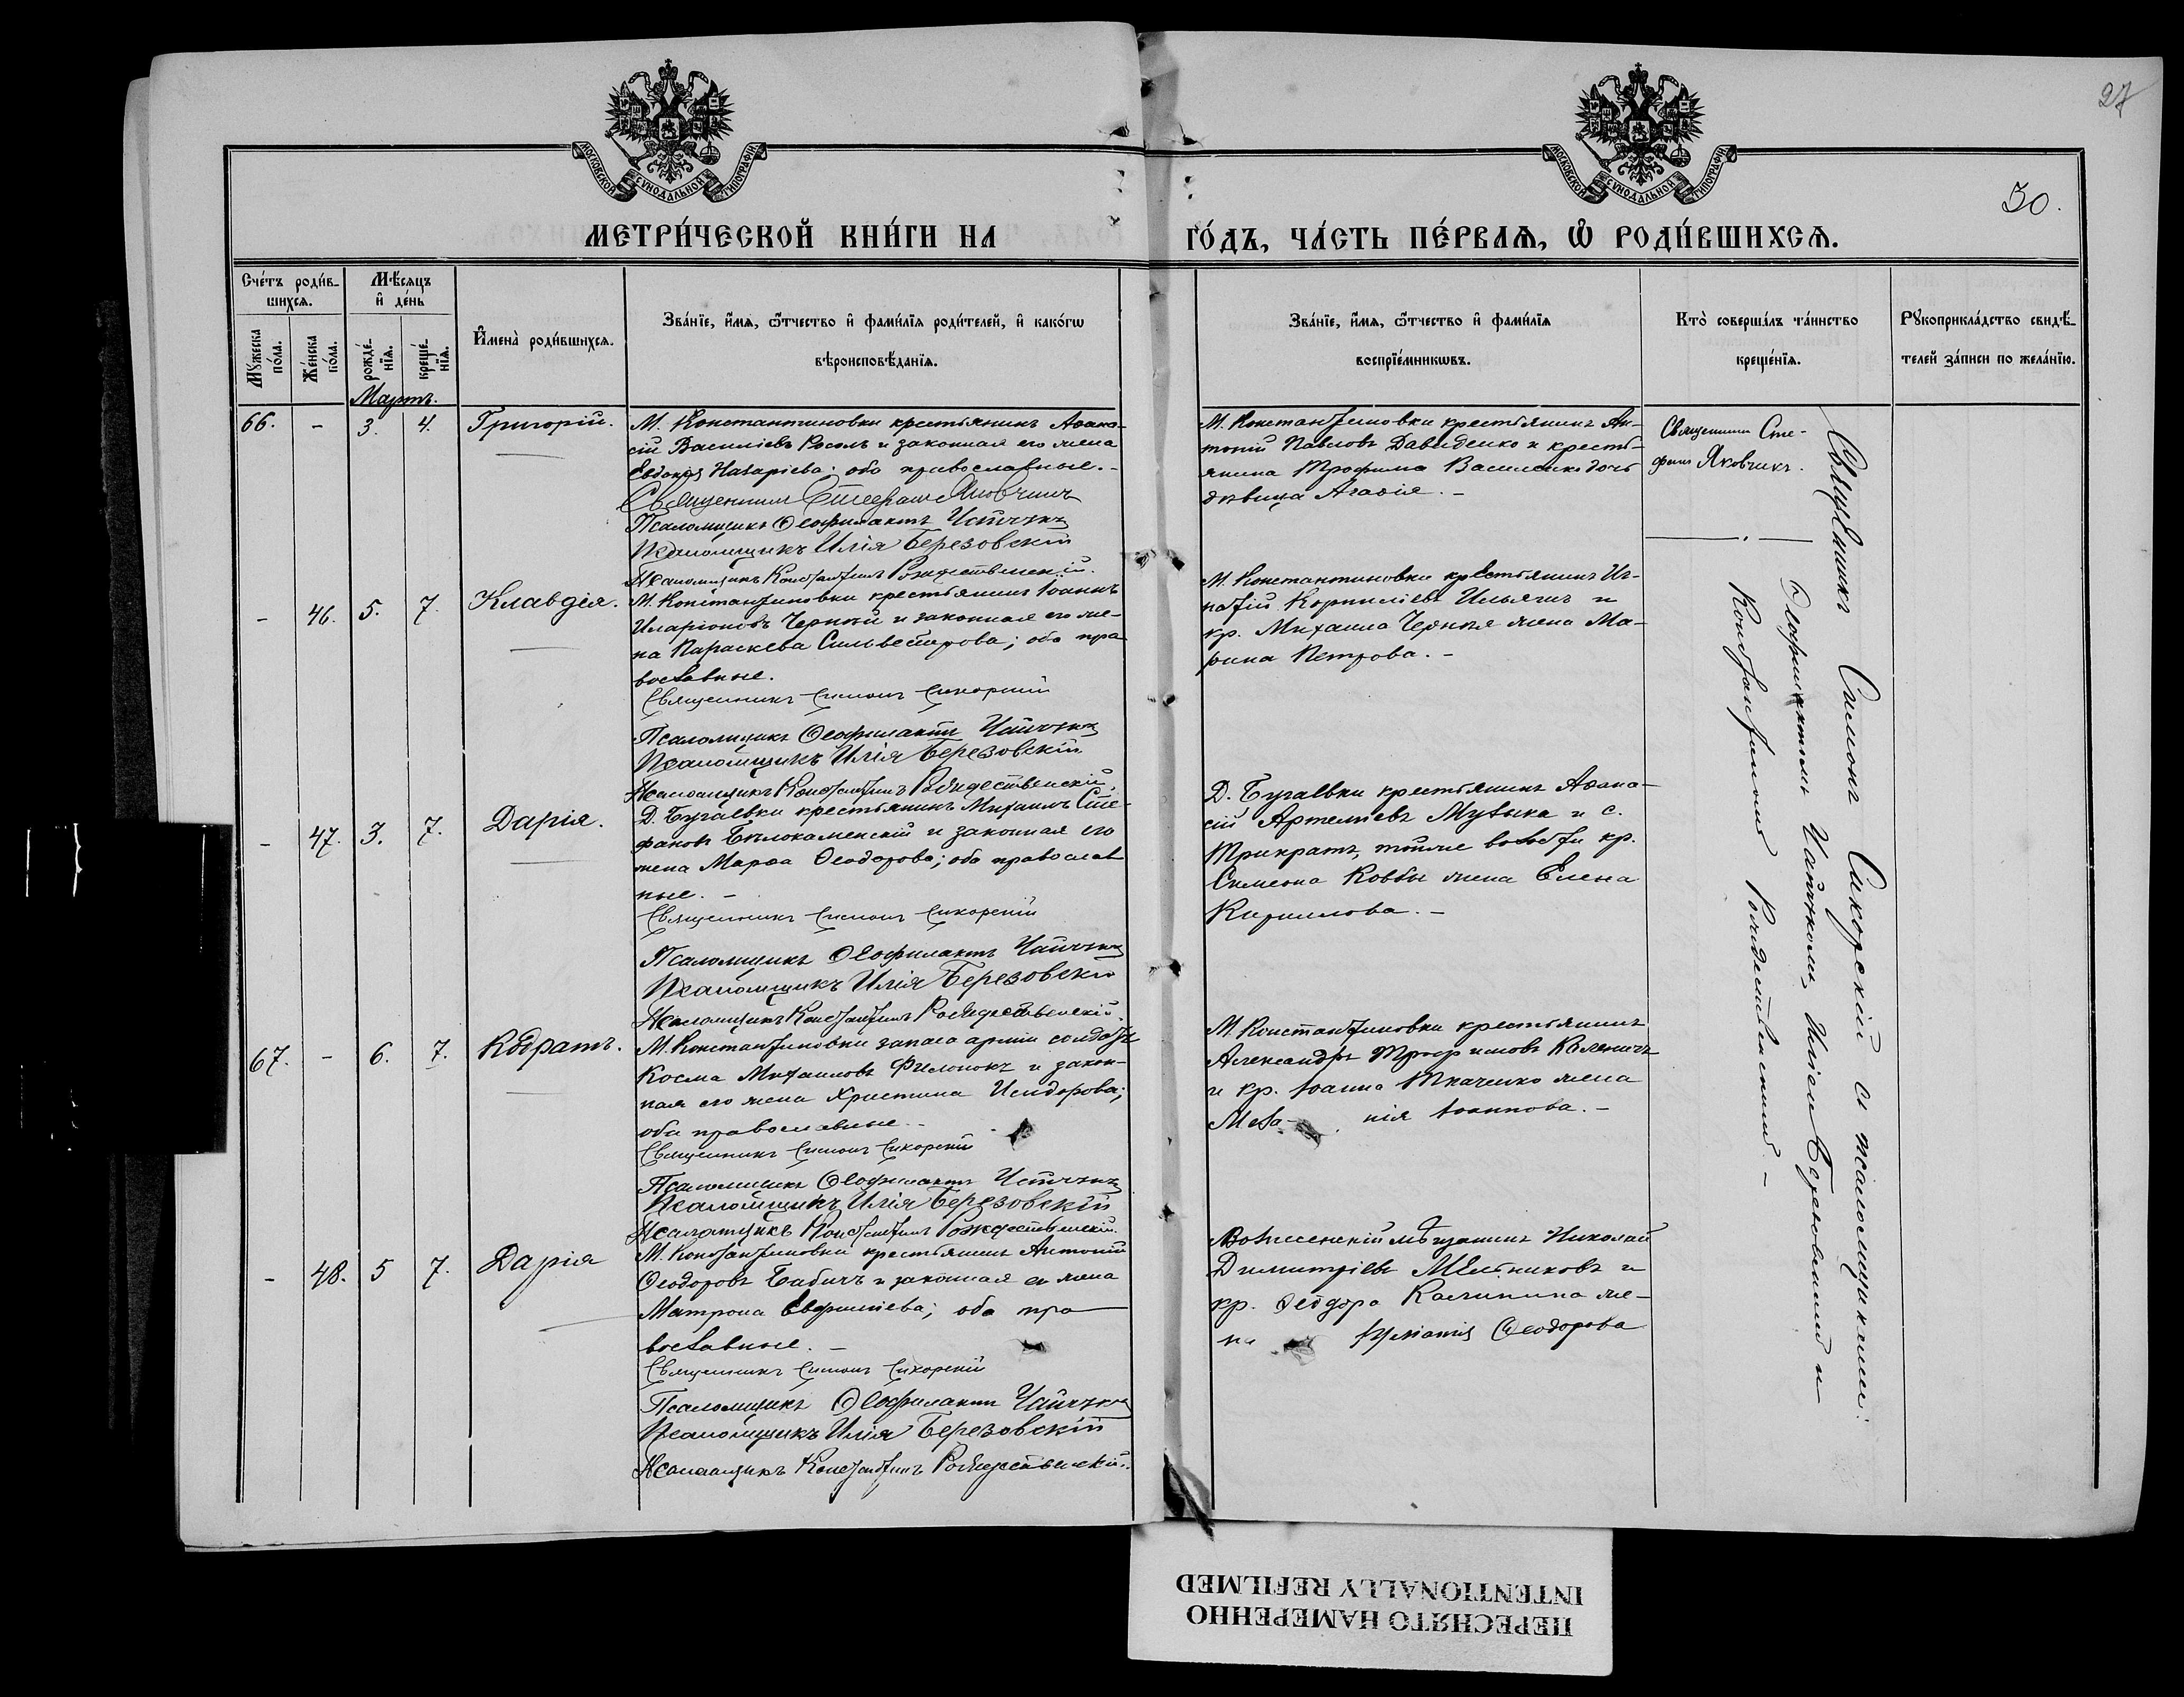 27
30.
МОСКОВСКОЙ СѴНОДАЛЬНОЙ ТИПОГРАФІИ
МОСКОВСКОЙ СѴНОДАЛЬНОЙ ТИПОГРАФІИ
МЕТРИ́ЧЕСКОЙ КНИ́ГИ НА ГО́ДЪ, ЧА́СТЬ ПЕ́РВАѦ, Ѡ҆ РОДИ́ВШИХСѦ.
Сче́тъ роди́в-
шихсѧ.
Мꙋ́жеска по́ла.
Же́нска по́ла.
Мѣ́сѧцъ и҆ де́нь
рожде́-нїѧ.
креще́-нїѧ.
И҆мена̀ роди́вшихсѧ.
Зва́нїе, и҆́мѧ, ѻ҆́тчество и҆ фами́лїѧ роди́телей, и҆ како́гѡ
вѣроисповѣ́данїѧ.
Зва́нїе, и҆́мѧ, ѻ҆́тчество и҆ фами́лїѧ
воспрїе́мникѡвъ.
Кто̀ соверша́лъ та́инство
креще́нїѧ.
Рꙋкоприкла́дство свидѣ́-
телей за́писи по жела́нїю.
Мартъ.
66. - 3. 4. Григорій.
М. Константиновки крестьянинъ Аѳана-
сій Василіевъ Росолъ и законная его жена
Евдокія Назаріева; оба православные. -
Священникъ Стефанъ Яковчикъ
Псаломщикъ Ѳеофилактъ
Псаломщикъ Илія Березовскій
Псаломщикъ Константинъ Рождественскій.
М. Константиновки крестьянинъ Ан-
тоній Павловъ Давиденко и кресть-
янина Трофима Василенко дочь
дѣвица Агафія. -
Священникъ Сте-
фанъ Яковчикъ.
- 46. 5. 7. Клавдія.
М. Константиновки крестьянинъ Іоаннъ
Иларіоновъ Черный и законная его же-
на Параскева Сильвестрова; оба пра-
вославные.
Священникъ Симонъ Сикорскій
Псаломщикъ Ѳеофилактъ
Псаломщикъ Илія Березовскій
Псаломщикъ Константинъ Рождественскій.
М. Константиновки крестьянинъ Иг-
натій Корниліевъ Ильягич и
кр. Михаила Чернія жена Ма-
рина Петрова. -
- 47. 3. 7. Дарія.
Д. Бугаевки крестьянинъ Михаилъ Сте-
фановъ Бѣлокаменскій и законная его
жена Марѳа Ѳеодорова; оба православ
ные. -
Священникъ Симонъ Сикорскій
Псаломщикъ Ѳеофилактъ
Псаломщикъ Илія Березовскій
Псаломщикъ Константинъ Рождественскій.
Д. Бугаевки крестьянинъ Аѳана-
сій Артеміевъ Музыка и с.
Трикратъ, тойже волости кр.
Симеона Коввы жена Елена
Кириллова. -
67. - 6. 7. Кодратъ.
М. Константиновки запаса арміи солдатъ
Косма Михаиловъ Филонокъ и закон-
ная его жена Христина Исидорова;
оба православные. -
Священникъ Симонъ Сикорскій
Псаломщикъ Ѳеофилактъ
Псаломщикъ Илія Березовскій
Псаломщикъ Константинъ Рождественскій.
М. Константиновки крестьянинъ
Александръ Трофимовъ Коленичъ
и кр. Іоанна Ткаченко жена
Мела- нія Іоаннова. -
- 48. 5 7. Дарія
М. Константиновки крестьянинъ Антоній
Ѳеодоровъ Бабичъ и законная его жена
Матрона Евфиміева; оба пра
вославные. -
Священникъ Симонъ Сикорскій
Псаломщикъ Ѳеофилактъ
Псаломщикъ Илія Березовскій
Псаломщикъ Константинъ Рождественскій.
Вознесенскій мѣщанинъ Николай
Димитріевъ Мельниковъ и
кр. Ѳеодора Калинина же-
на Ѳеодорова
Священникъ Симонъ Сикорскій съ псаломщиками:
Ѳеофилактомъ Иліею Березовскимъ и
Константиномъ Рождественскимъ. -
ПЕРЕСНЯТО НАМЕРЕННО
INTENTIONALLY REFILMED